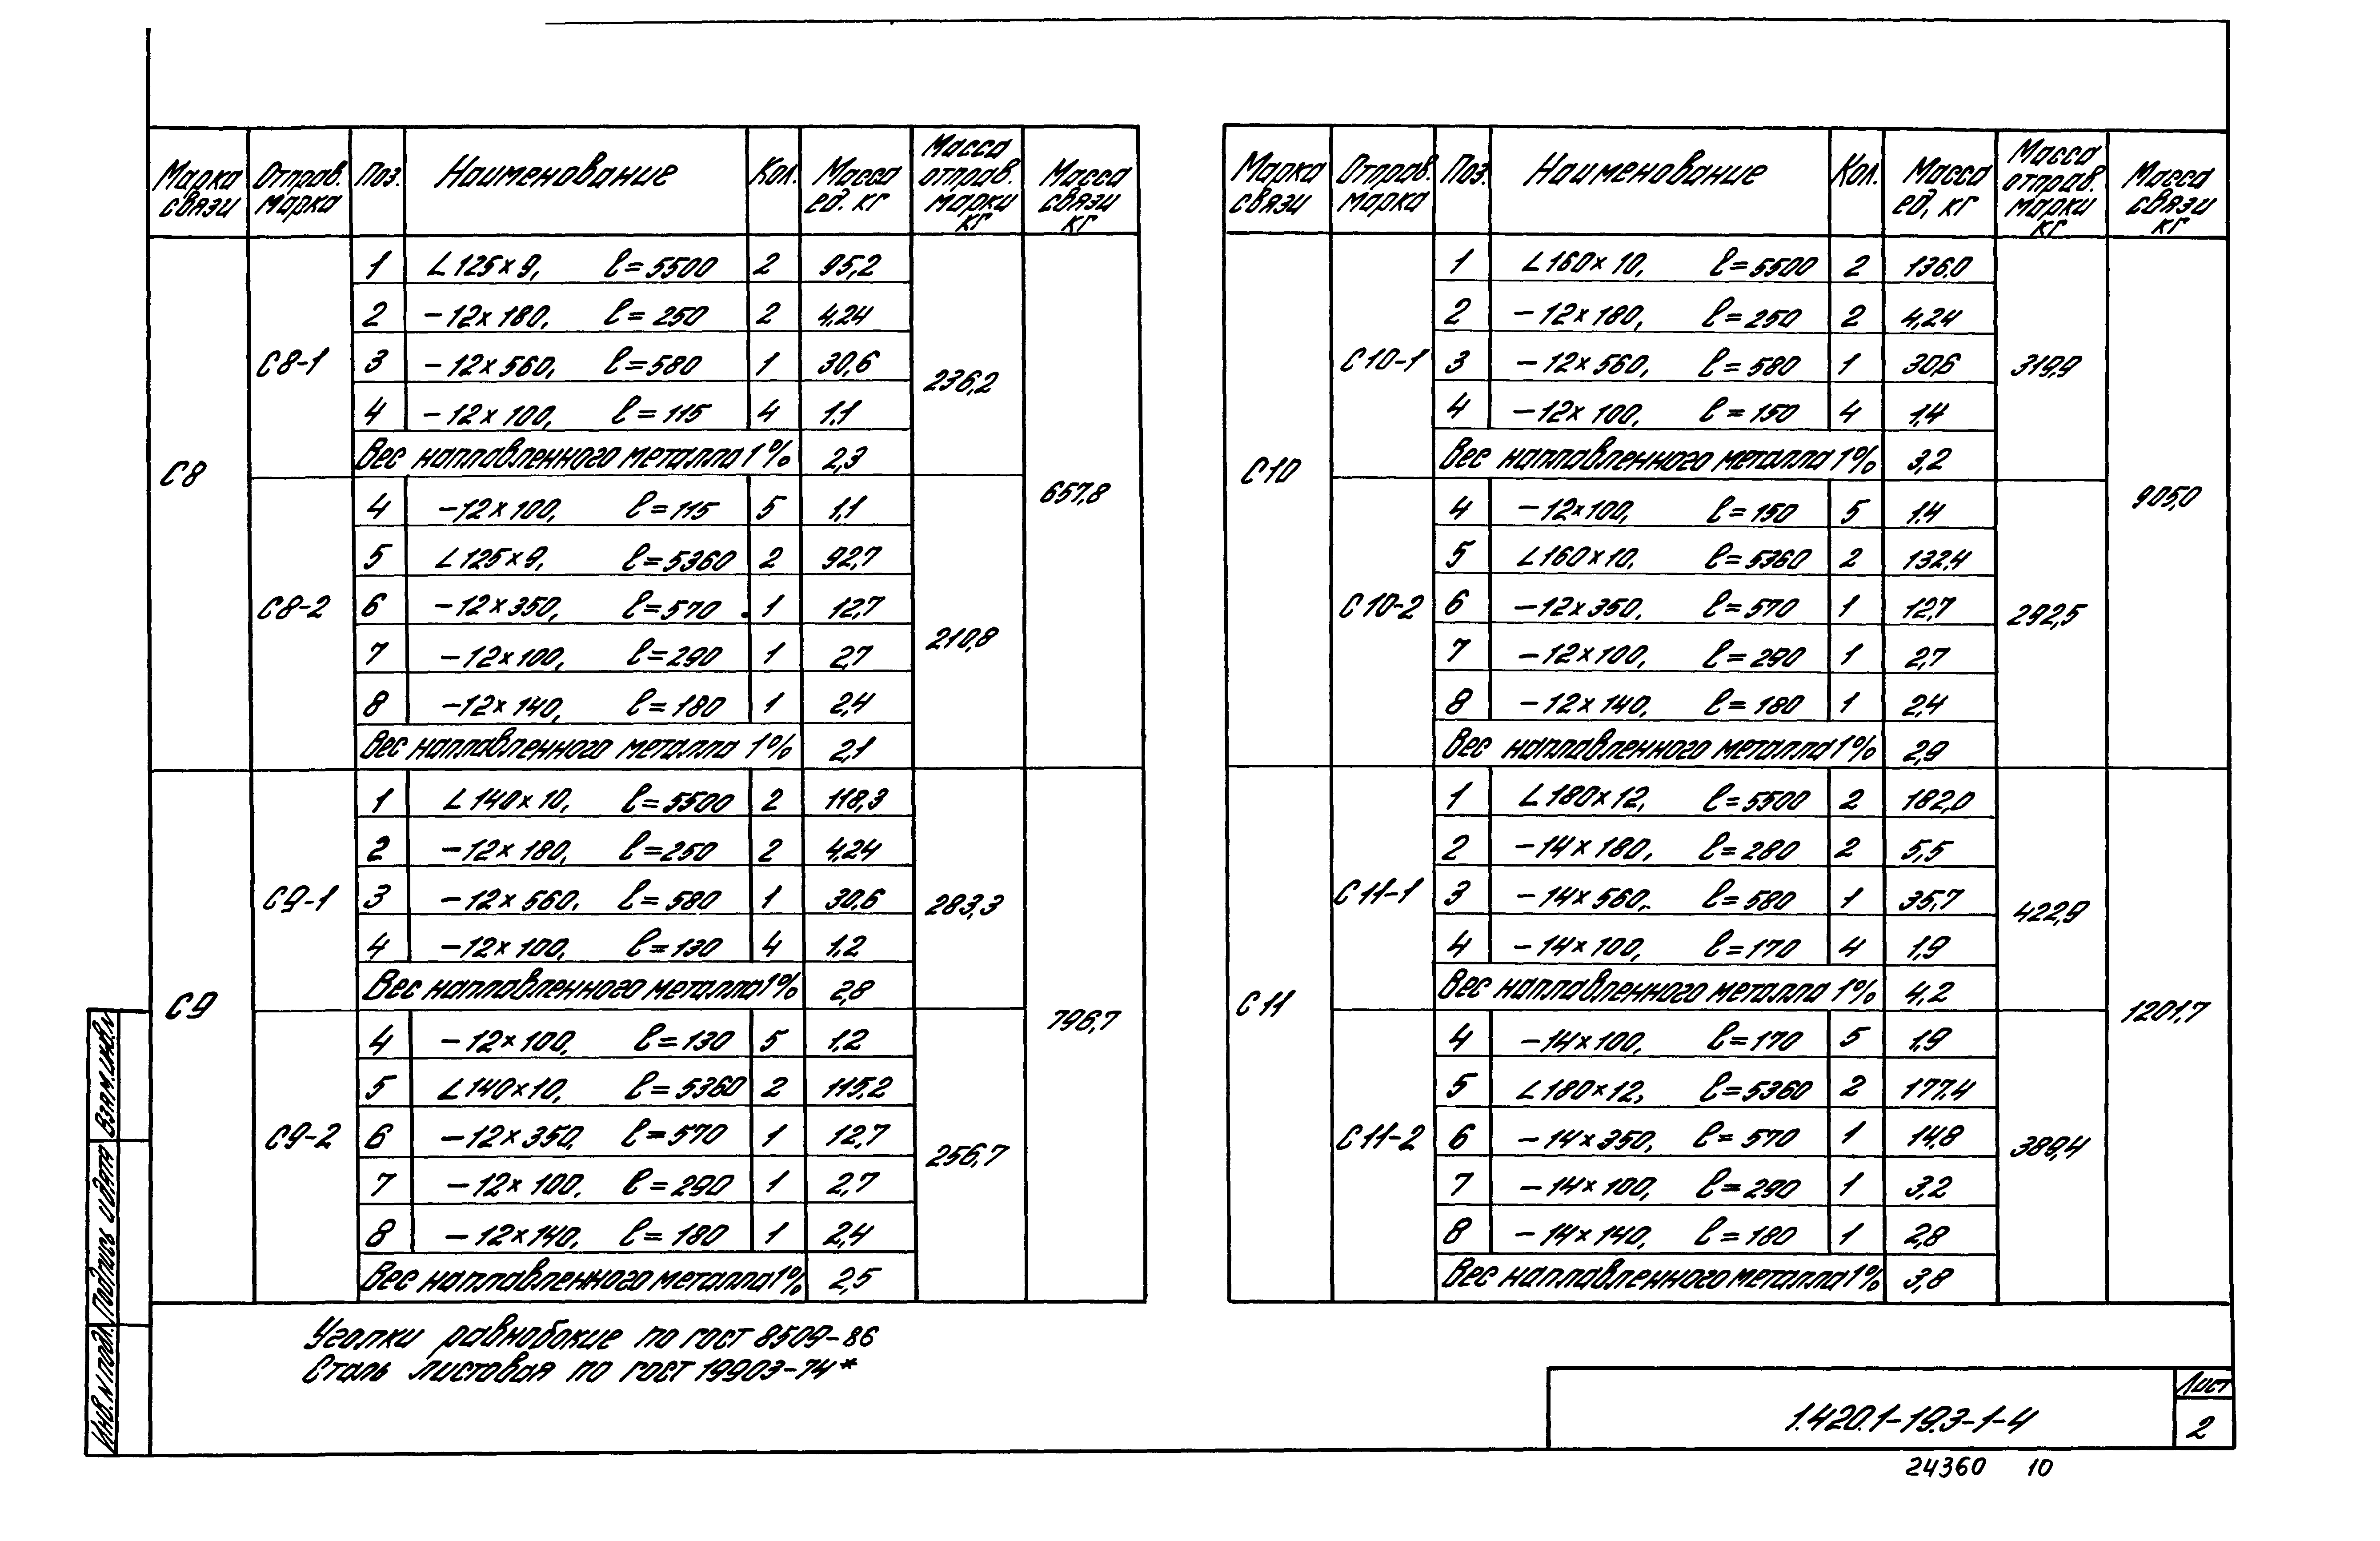 Марка связи Отправ. марка Поз. Наименование Кол. Масса ед. кг Масса отправ. марки кг Масса связи кг
С8 С8-1 1 ∟125×9, ℓ=5500 2 95,2 236,2 657,8
2 -12×180, ℓ=250 2 4,24
3 -12×560, ℓ=580 1 30,6
4 -12×100, ℓ=115 4 1.1
Вес наплавленного металла 1% 2,3
С8-2 4 -12×100, ℓ=115 5 1,1 210,8
5 ∟125×9, ℓ=5360 2 92,7
6 -12×350, ℓ=570 1 12,7
7 -12×100, ℓ=290 1 2,7
8 -12×140, ℓ=180 1 2,4
Вес наплавленного металла 1% 2,1
С9 С9-1 1 ∟140×10, ℓ=5500 2 118,3 283,3 796,7
2 -12×180, ℓ=250 2 4,24
3 -12×560, ℓ=580 1 30,6
4 -12×100, ℓ=130 4 1,2
Вес наплавленного металла 1% 2,8
С9-2 4 -12×100, ℓ=130 5 1,2 256,7
5 ∟140×10, ℓ=5360 2 115,2
6 -12×350, ℓ=570 1 12,7
7 -12×100, ℓ=290 1 2,7
8 -12×140, ℓ=180 1 2,4
Вес наплавленного металла 1% 2,5
Марка связи Отправ. марка Поз. Наименование Кол. Масса ед, кг Масса отправ. марки кг Масса связи кг
С10 С10-1 1 ∟160×10, ℓ=5500 2 136,0 319,9 905,0
2 -12×180, ℓ=250 2 4,24
3 -12×560, ℓ=580 1 30,6
4 -12×100, ℓ=150 4 1,4
Вес наплавленного металла 1% 3,2
С10-2 4 -12×100, ℓ=150 5 1,4 292,5
5 ∟160×10, ℓ=5360 2 132,4
6 -12×350, ℓ=570 1 12,7
7 -12×100, ℓ=290 1 2,7
8 -12×140, ℓ=180 1 2,4
Вес наплавленного металла 1% 2,9
С11 С11-1 1 ∟180×12, ℓ=5500 2 182,0 422,9 1201,7
2 -14×180, ℓ=280 2 5,5
3 -14×560, ℓ=580 1 35,7
4 -14×100, ℓ=170 4 1,9
Вес наплавленного металла 1% 4,2
С11-2 4 -14×100, ℓ=170 5 1,9 389,4
5 ∟180×12, ℓ=5360 2 177,4
6 -14×350, ℓ=570 1 14,8
7 -14×100, ℓ=290 1 3,2
8 -14×140, ℓ=180 1 2,8
Вес наплавленного металла 1% 3,8
Уголки равнобокие по гост 8509-86
Сталь листовая по гост 19903-74*
Инв. N подл. Подпись и дата Взам. инв. N
1.420.1-19.3-1-4
Лист
2
24360 10